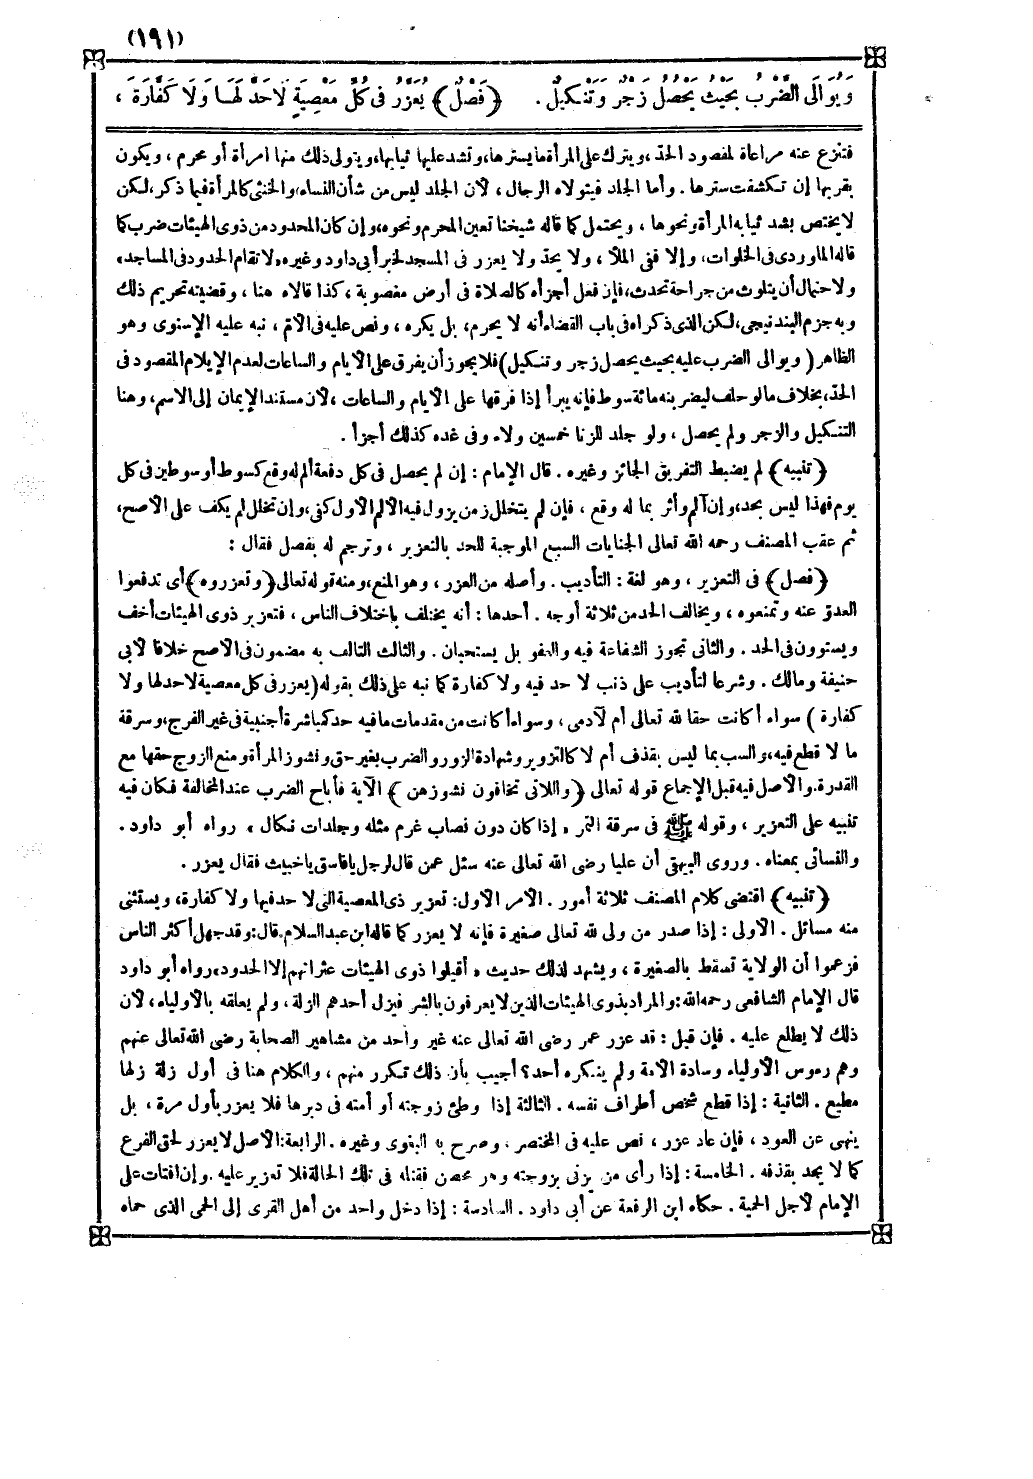 (١٩١)
وَيُوَالَى الضَّرْبُ بِحَيْثُ يَحْصُلُ زَجْرٌ وَتَنْكِيلٌ . (فَصْلٌ) يُعَزَّرُ فِى كُلِّ مَعْصِيَةٍ لَاحَدَّ لَهَا وَلَا كَفَّارَةَ ،
فتنزع عنه مراعاة لمقصود الحد ، ويترك على المرأة ما يسترها ، وتشد عليها ثيابها ، ويتولى ذلك منها امرأة أو محرم ، ويكون
بقربها إن تكشفت سترها . وأما الجلد فيتولاه الرجال ، لأن الجلد ليس من شأن النساء ، والخنثى كالمرأة فيما ذكر ، لكن
لا يختص بشد ثيابه المرأة ونحوها ، ويحتمل كما قاله شيخنا تعين المحرم ونحوه ، وإن كان المحدود من ذوى الهيئات ضرب كما
قاله الماوردى فى الخلوات ، وإلا ففى الملأ ، ولا يحد ولا يعزر فى المسجد لخبر أبى داود وغيره « لا تقام الحدود فى المساجد »
ولاحتمال أن يتلوث من جراحة تحدث ، فإن فعل أجزأه كالصلاة فى أرض مغصوبة ، كذا قالاه هنا ، وقضيته تحريم ذلك
وبه جزم البندنيجى ، لكن الذى ذكراه فى باب القضاء أنه لا يحرم ، بل يكره ، ونص عليه فى الأم ، نبه عليه الإسنوى وهو
الظاهر (ويوالى الضرب عليه بحيث يحصل زجر وتنكيل) فلا يجوز أن يفرق على الأيام والساعات لعدم الإيلام المقصود فى
الحد ، بخلاف ما لو حلف ليضربنه مائة سوط فإنه يبرأ إذا فرقها على الأيام والساعات ، لأن مستند الإيمان إلى الاسم ، وهنا
التنكيل والزجر ولم يحصل ، ولو جلد للزنا خمسين ولاء وفى غده كذلك أجزأ .
(تنبيه) لم يضبط التفريق الجائز وغيره . قال الإمام : إن لم يحصل فى كل دفعة ألم له وقع كسوط أو سوطين فى كل
يوم فهذا ليس بحد ، وإن آلم وأثر بما له وقع ، فإن لم يتخلل زمن يزول فيه الألم الأول كفى ، وإن تخلل لم يكف على الأصح ،
ثم عقب المصنف رحمه الله تعالى الجنايات السبع الموجبة للحد بالتعزير ، وترجم له بفصل فقال :
(فصل) فى التعزير ، وهو لغة : التأديب . وأصله من العزر ، وهو المنع ، ومنه قوله تعالى (وتعزروه) أى تدفعوا
العدو عنه وتمنعوه ، ويخالف الحد من ثلاثة أوجه . أحدها : أنه يختلف باختلاف الناس ، فتعزير ذوى الهيئات أخف
ويستوون فى الحد . والثانى تجوز الشفاعة فيه والعفو بل يستحبان . والثالث التالف به مضمون فى الأصح خلافا لأبى
حنيفة ومالك . وشرعا لتأديب على ذنب لا حد فيه ولا كفارة كما نبه على ذلك بقوله (يعزر فى كل معصية لا حد لها ولا
كفارة) سواء أكانت حقا لله تعالى أم لآدمى ، وسواء أكانت من مقدمات ما فيه حد كمباشرة أجنبية فى غير الفرج ، وسرقة
ما لا قطع فيه ، والسب بما ليس بقذف أم لا كالتزوير وشهادة الزور والضرب بغير حق ونشوز المرأة ومنع الزوج حقها مع
القدرة . والأصل فيه قبل الإجماع قوله تعالى (واللاتى تخافون نشوزهن) الآية فأباح الضرب عند المخالفة فكان فيه
تنبيه على التعزير ، وقوله ﷺ فى سرقة التمر « إذا كان دون نصاب غرم مثله وجلدات نكال » رواه أبو داود .
والنسائى بمعناه . وروى البيهقى أن عليا رضى الله تعالى عنه سئل عمن قال لرجل يا فاسق يا خبيث فقال يعزر .
(تنبيه) اقتضى كلام المصنف ثلاثة أمور . الأمر الأول : تعزير ذى المعصية التى لا حد فيها ولا كفارة ، ويستثنى
منه مسائل . الأولى : إذا صدر من ولى لله تعالى صغيرة فإنه لا يعزر كما قاله ابن عبد السلام . قال : وقد جهل أكثر الناس
فزعموا أن الولاية تسقط بالصغيرة ، ويشهد لذلك حديث « أقيلوا ذوى الهيئات عثراتهم إلا الحدود » رواه أبو داود
قال الإمام الشافعى رحمه الله : والمراد بذوى الهيئات الذين لا يعرفون بالشر فيزل أحدهم الزلة ، ولم يعلقه بالأولياء ، لأن
ذلك لا يطلع عليه . فإن قيل : قد عزر عمر رضى الله تعالى عنه غير واحد من مشاهير الصحابة رضى الله تعالى عنهم
وهم رءوس الأولياء وسادة الأمة ولم ينكره أحد ؟ أجيب بأن ذلك تكرر منهم ، والكلام هنا فى أول زلة زلها
مطيع . الثانية : إذا قطع شخص أطراف نفسه . الثالثة إذا وطئ زوجته أو أمته فى دبرها فلا يعزر بأول مرة ، بل
ينهى عن العود ، فإن عاد عزر ، نص عليه فى المختصر ، وصرح به البغوى وغيره . الرابعة : الأصل لا يعزر لحق الفرع
كما لا يحد بقذفه . الخامسة : إذا رأى من يزنى بزوجته وهو محصن فقتله فى تلك الحالة فلا تعزير عليه . وإن افتات على
الإمام لأجل الحمية . حكاه ابن الرفعة عن أبى داود . السادسة : إذا دخل واحد من أهل القرى إلى الحمى الذى حماه